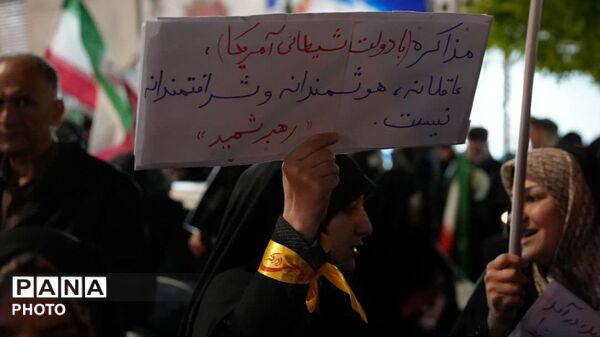 مذاکره (با دولت شیطانی آمریکا)،
عاقلانه، هوشمندانه و شرافتمندانه
نیست.
«رهبر شهید»
PANA
PHOTO